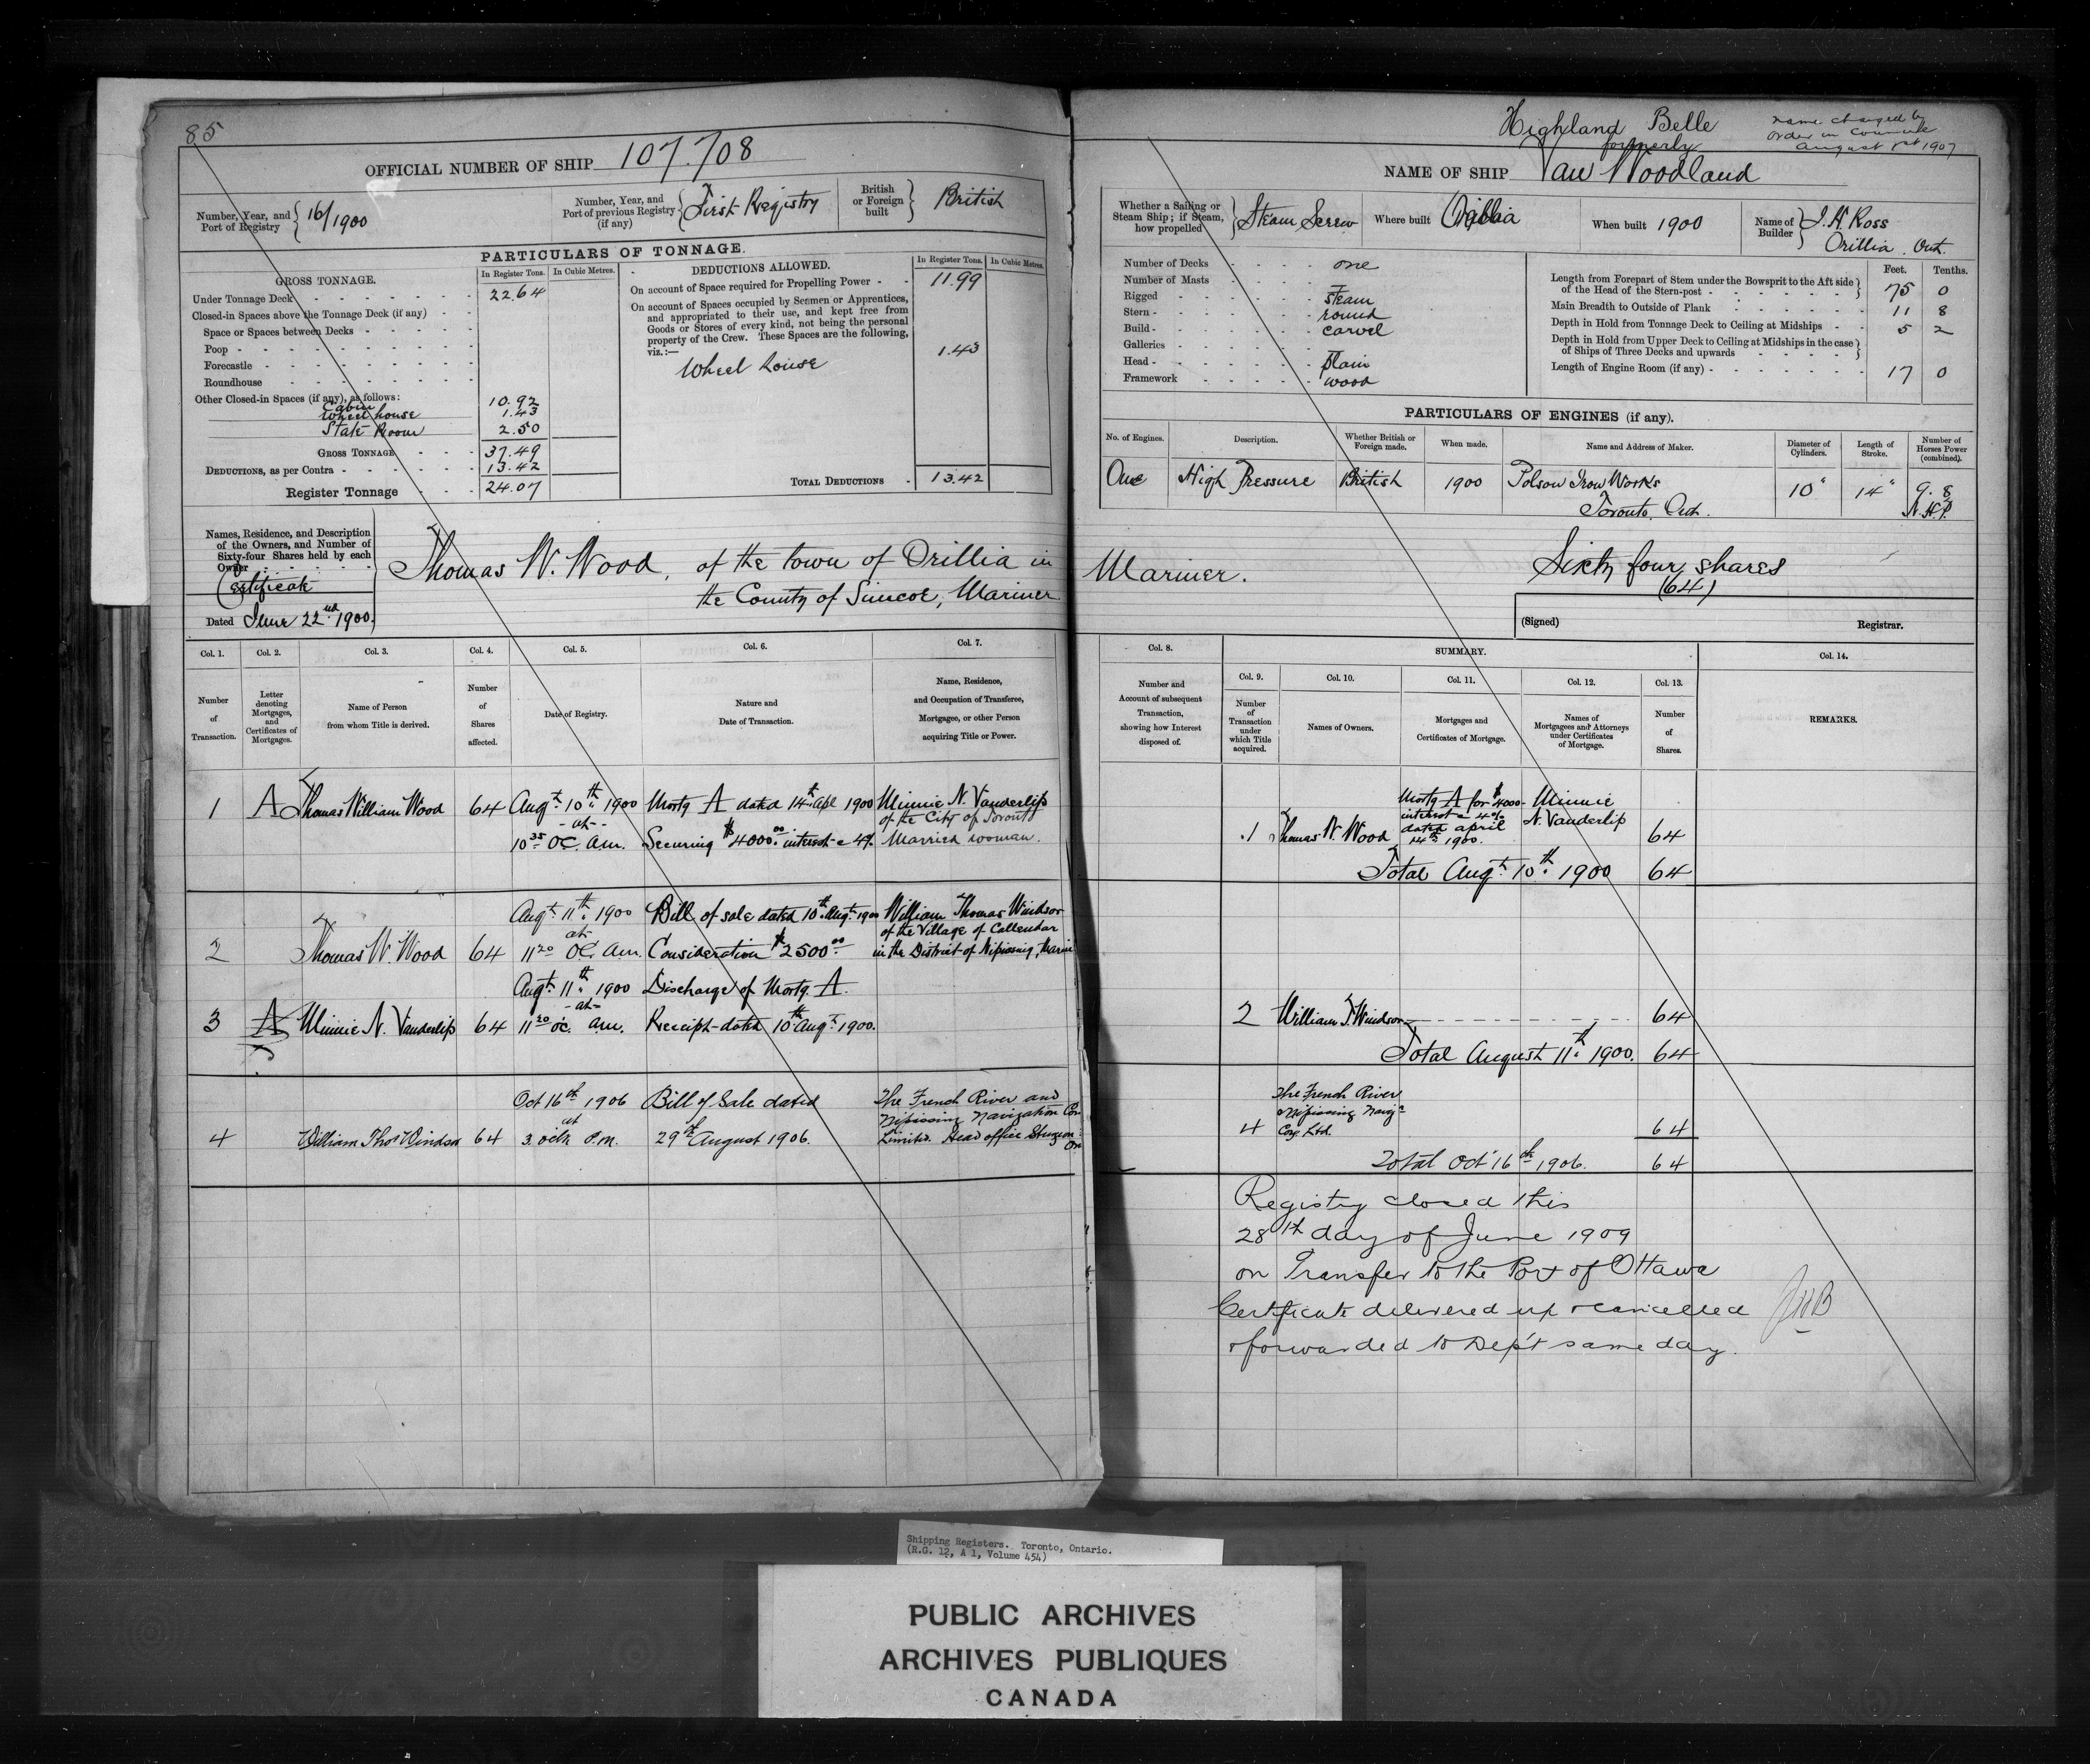 85
OFFICIAL NUMBER OF SHIP 107.708
Number, Year, and Port of Registry 16/1900
Number, Year, and Port of previous Registry (if any) First Registry
British or Foreign built British
PARTICULARS OF TONNAGE.
GROSS TONNAGE. In Register Tons. In Cubic Metres.
Under Tonnage Deck 22.64
Closed-in Spaces above the Tonnage Deck (if any)
Space or Spaces between Decks
Poop
Forecastle
Roundhouse
Other Closed-in Spaces (if any), as follows:
Cabin 10.92
Wheel house 1.43
State Room 2.50
GROSS TONNAGE 37.49
DEDUCTIONS, as per Contra 13.42
Register Tonnage 24.07
DEDUCTIONS ALLOWED. In Register Tons. In Cubic Metres.
On account of Space required for Propelling Power 11.99
On account of Spaces occupied by Seamen or Apprentices,
and appropriated to their use, and kept free from
Goods or Stores of every kind, not being the personal
property of the Crew. These Spaces are the following,
viz.:— 1.43
Wheel house
TOTAL DEDUCTIONS 13.42
Names, Residence, and Description
of the Owners, and Number of
Sixty-four Shares held by each
Owner
Certificate
Dated June 22nd 1900.
Thomas W. Wood, of the town of Orillia in
the County of Simcoe, Mariner
Col. 1. Col. 2. Col. 3. Col. 4. Col. 5. Col. 6. Col. 7.
Number of Transaction.
Letter denoting Mortgages, and Certificates of Mortgages.
Name of Person from whom Title is derived.
Number of Shares affected.
Date of Registry.
Nature and Date of Transaction.
Name, Residence, and Occupation of Transferee, Mortgagee, or other Person acquiring Title or Power.
1 A Thomas William Wood 64 Augt 10th 1900 Mortg A dated 14th Apl 1900 Minnie N. Vanderlip
of the City of Toronto
-at- 10 35 OC. am. Securing $4000.00 interest @ 4% Married woman.
Augt 11th 1900 Bill of sale dated 10th Augt 1900 William Thomas Windsor
at of the Village of Callendar
2 Thomas W. Wood 64 11 20 OC. am. Consideration $2500.00 in the District of Nipissing, Marin
Augt 11th 1900 Discharge of Mortg. A.
-at-
3 A Minnie N. Vanderlip 64 11 20 OC. am. Receipt dated 10th Augt 1900.
Oct 16th 1906 Bill of Sale dated The French River and
at Nipissing Navigation Com
4 William Thos Windsor 64 3 oclk P.M. 29th August 1906. Limited. Head office Sturgeon
Highland Belle
formerly
name changed by
order in Council
August 1st 1907
NAME OF SHIP Van Woodland
Whether a Sailing or Steam Ship; if Steam, how propelled Steam Screw
Where built Orillia
When built 1900
Name of Builder J. H. Ross
Orillia. Ont.
Number of Decks one
Number of Masts
Rigged steam
Stern round
Build carvel
Galleries
Head plain
Framework wood
Feet. Tenths.
Length from Forepart of Stem under the Bowsprit to the Aft side
of the Head of the Stern-post 75 0
Main Breadth to Outside of Plank 11 8
Depth in Hold from Tonnage Deck to Ceiling at Midships 5 2
Depth in Hold from Upper Deck to Ceiling at Midships in the case
of Ships of Three Decks and upwards
Length of Engine Room (if any) 17 0
PARTICULARS OF ENGINES (if any).
No. of Engines. Description. Whether British or Foreign made. When made. Name and Address of Maker. Diameter of Cylinders. Length of Stroke. Number of Horses Power (combined).
One High Pressure British 1900 Polson Iron Works 10" 14" 9.8
Toronto. Ont. N.H.P.
Mariner. Sixty four shares
(64)
(Signed) Registrar.
Col. 8. SUMMARY. Col. 14.
Col. 9. Col. 10. Col. 11. Col. 12. Col. 13.
Number and Account of subsequent Transaction, showing how Interest disposed of.
Number of Transaction under which Title acquired.
Names of Owners.
Mortgages and Certificates of Mortgage.
Names of Mortgagees and Attorneys under Certificates of Mortgage.
Number of Shares.
REMARKS.
Mortg A for $4000 Minnie
interest @ 4% N. Vanderlip
1 Thomas W. Wood dated april 64
14th 1900.
Total Augt 10th 1900 64
2 William T. Windsor 64
Total August 11th 1900. 64
The French River
Nipissing Navign
4 Coy Ltd. 64
Total Oct 16th 1906. 64
Registry closed this
28th day of June 1909
on Transfer to the Port of Ottawa
Certificate delivered up & cancelled
& forwarded to Dep't same day.
Shipping Registers. Toronto, Ontario.
(R.G. 12, A 1, Volume 454)
PUBLIC ARCHIVES
ARCHIVES PUBLIQUES
CANADA